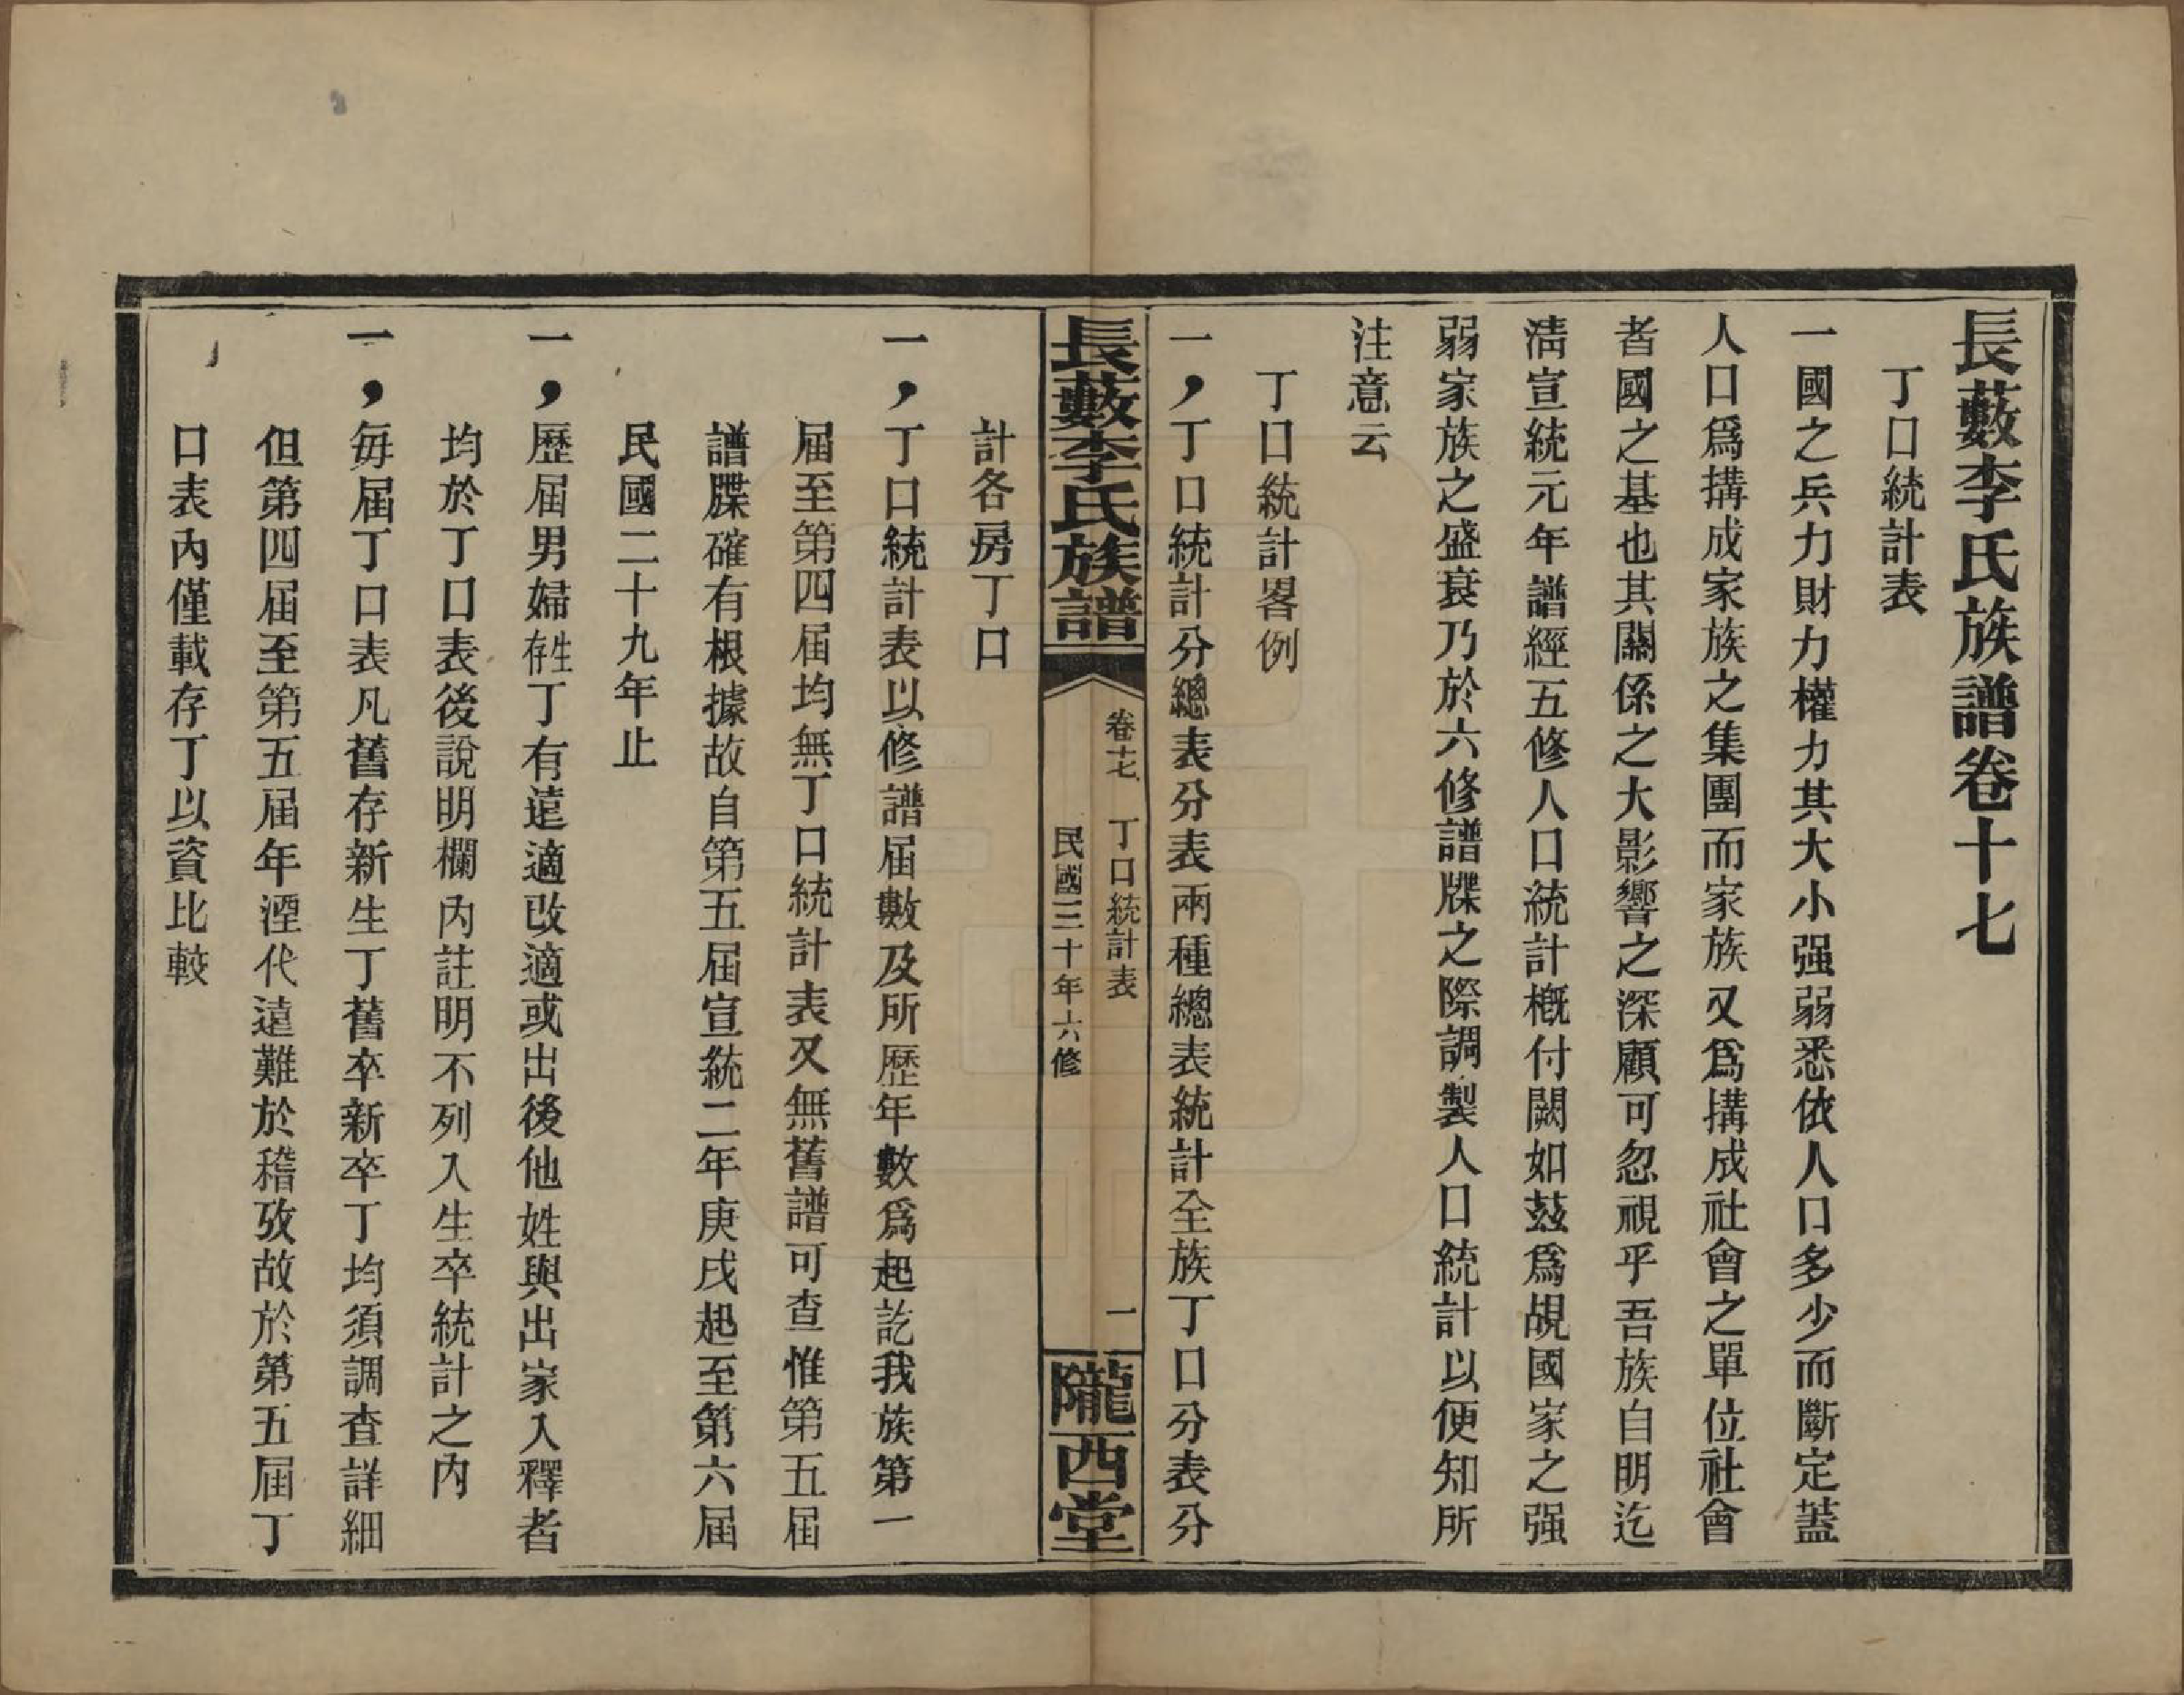 長藪李氏族譜卷十七
丁口統計表
一國之兵力財力權力其大小强弱悉依人口多少而斷定蓋
人口爲搆成家族之集團而家族又爲搆成社會之單位社會
者國之基也其關係之大影響之深顧可忽視乎吾族自明迄
淸宣統元年譜經五修人口統計槪付闕如茲爲覘國家之强
弱家族之盛衰乃於六修譜牒之際調製人口統計以便知所
注意云
丁口統計畧例
一，丁口統計分總表分表兩種總表統計全族丁口分表分
長藪李氏族譜
卷十七 丁口統計表 一
民國三十年六修
隴西堂
計各房丁口
一，丁口統計表以修譜届數及所歷年數爲起訖我族第一
届至第四届均無丁口統計表又無舊譜可查惟第五届
譜牒確有根據故自第五届宣統二年庚戌起至第六届
民國二十九年止
一，歷届男婦生存丁有遠適改適或出後他姓與出家入釋者
均於丁口表後說明欄內註明不列入生卒統計之內
一，每届丁口表凡舊存新生丁舊卒新卒丁均須調查詳細
但第四届至第五届年湮代遠難於稽攷故於第五届丁
口表內僅載存丁以資比較